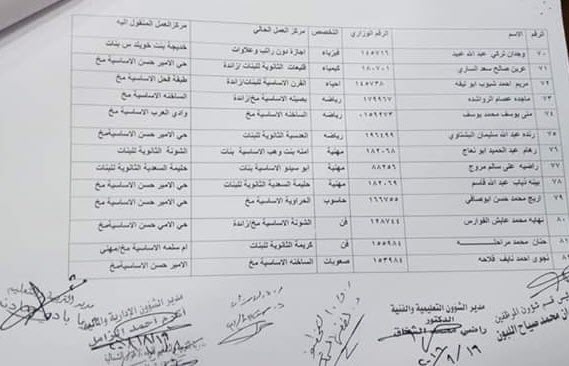 الرقم الاسم الرقم الوزاري التخصص مركز العمل الحالي مركز العمل المنقول اليه
٧٠ وجدان تركي عبد الله عبيد ١٤٥٧١٦ فيزياء اجازة دون راتب وعلاوات خديجة بنت خويلد س بنات
٧١ عرين صالح سعد الساري ١٨٠٧٠١ كيمياء الثانوية للبنات/زائدة حي الامير حسن الاساسية مخ
٧٢ مريم احمد شبوب ابو نيفه ١٤٥٧٣٨ احياء القرن الاساسية للبنات/زائدة طبقة فحل الاساسية مخ
٧٣ ماجده عصام الرواشده ١٧٩٩٦٧ رياضه الاساسية مخ/زائدة الساخنه الاساسية مخ
٧٤ منى يوسف محمد يوسف ٠٥٩٩٧٣ رياضه الساخنه الاساسية مخ وادي العرب الاساسية مخ
٧٥ رنده عبد الله سليمان البشتاوي ١٩٦٤٩٩ رياضه العدسية الثانوية للبنات حي الامير حسن الاساسيةمخ
٧٦ رهام عبد الحميد ابو نعاج ١٨٢٠٦٨ مهنية امنه بنت وهب الاساسية بنات الشونة الثانوية للبنات
٧٧ راضيه علي سالم مروح ٨٨٢٥٦ مهنية ابو سيدو الاساسية بنات حليمة السعدية الثانوية للبنات
٧٨ بينه ذياب عبد الله قاسم ١٨٢٠٦٩ مهنية حليمة السعدية الثانوية للبنات حي الامير حسن الاساسية مخ
٧٩ اريج محمد حسن ابوصافي ١٦٦٧٥٥ حاسوب الحراوية الاساسية مخ حي الامير حسن الاساسية مخ
نهايه محمد عايش الفوارس ١٢٨٧٤٤ فن الشونة الاساسية مخ/زائدة حي الامير حسن الاساسيةمخ
حنان محمد مراحله ١٥٥٩٨٤ فن كريمة الثانوية للبنات ام سلمه الاساسية مخ/مهني
نجوى احمد نايف فلاحه ١٥٣٩٨٤ صعوبات الساخنه الاساسية مخ الامير حسن الاساسيةمخ
قسم شؤون الموظفين مدير الشؤون التعليمية والفنية مدير الشؤون الادارية والمالية مدير التربية والتعليم
محمد صباح الدكتور